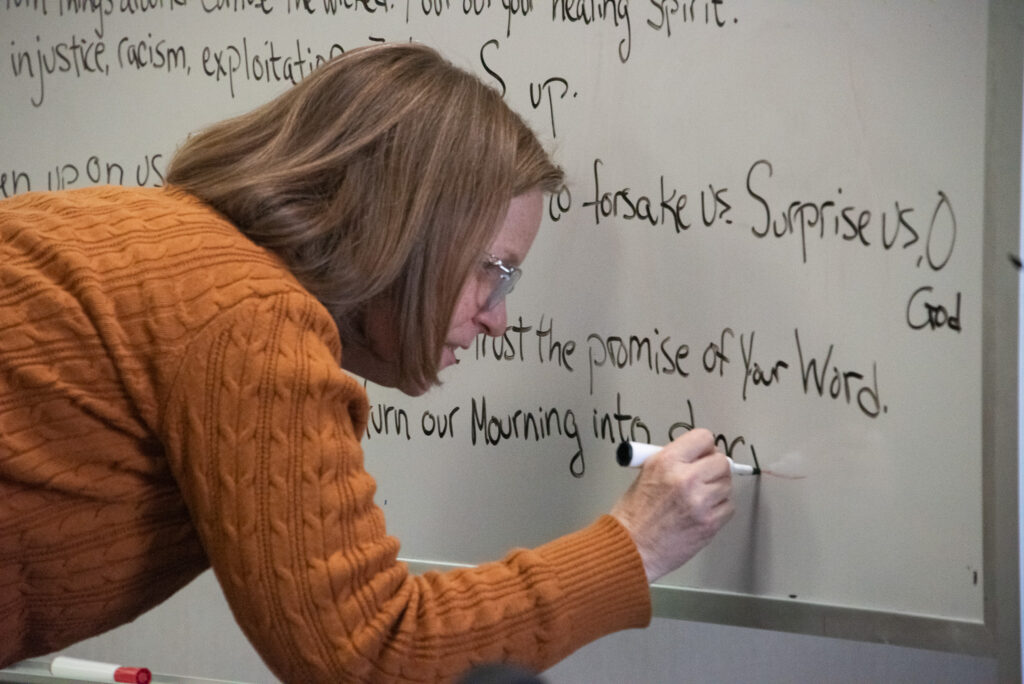 things your healing Spirit.
injustice, racism, exploitation
up.
up on us to forsake us. Surprise us, O
God
trust the promise of Your Word.
turn our Mourning into danci